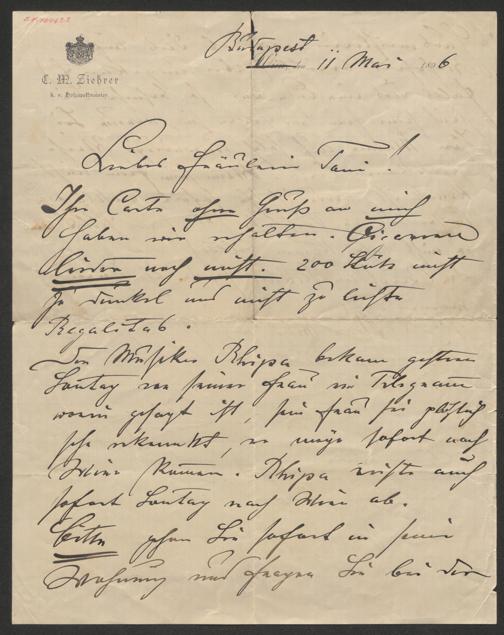 C. M. Ziehrer
k. u. k. Hofballmusikdirector
Budapest
11 Mai 1896
Liebes Fräulein Tani!
Ihre Carte ohne Gruß an mich
haben wir erhalten. Cigarren
leider noch nicht. 200 Stück nicht
zu dunkel und nicht zu lichte
Regalitas.
Der Musiker Rhipa bekam gestern
Sontag von seiner Frau ein Telegramm
worin gesagt ist, seine Frau sei plötzlich
sehr erkrankt, er möge sofort nach
Wien kommen. Rhipa reiste auch
sofort Sontag nach Wien ab.
Bitte gehen Sie sofort in seine
Wohnung und fragen Sie bei der